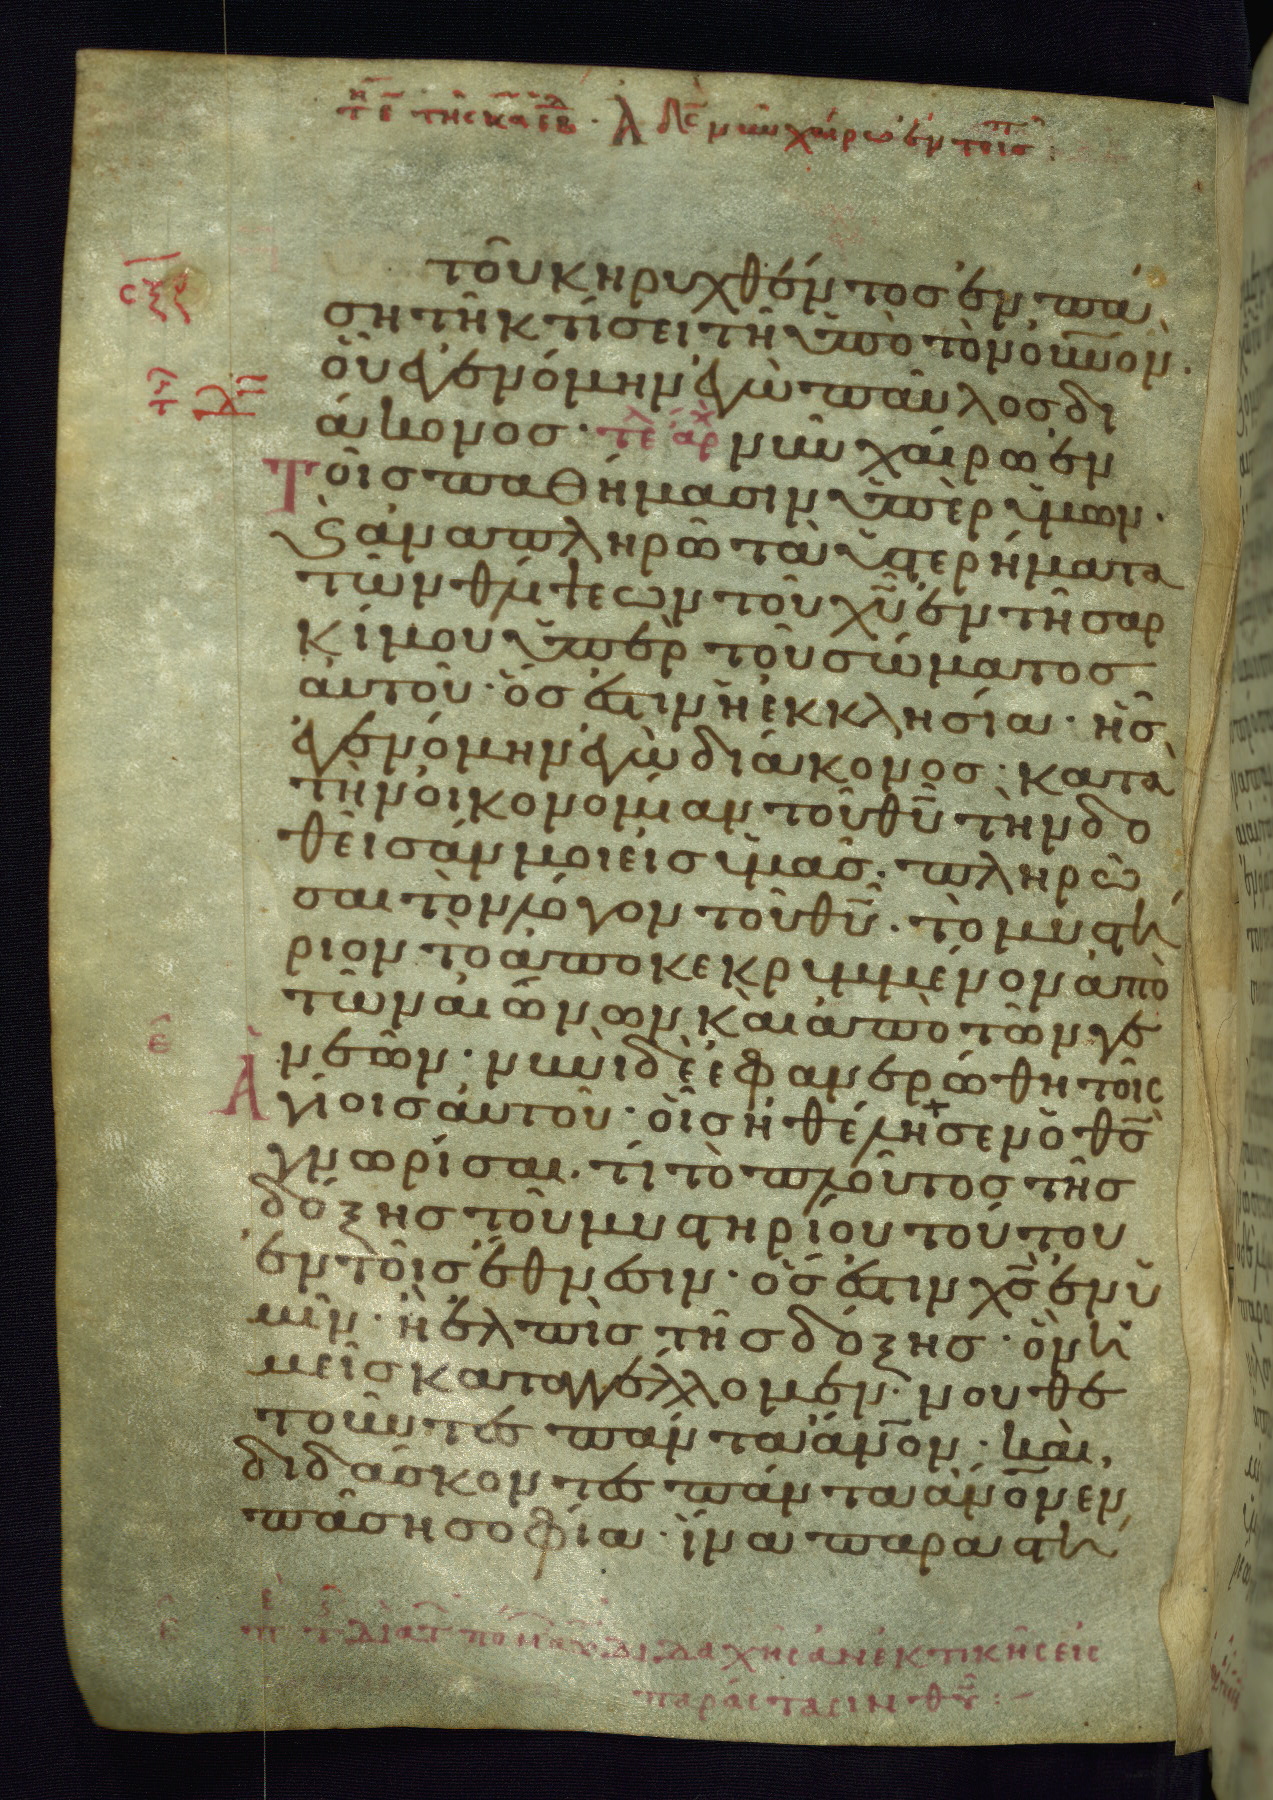 τοῦ κηρυχθέντος ἐν πά
σῃ τῇ κτίσει τῇ ὑπὸ τὸν οὐνον.
οὗ ἐγενόμην ἐγὼ παῦλος δι
άκονος · τελ ἀρχ νῦν χαίρω ἐν
Τοῖς παθήμασιν ὑπὲρ ὑμῶν.
ϗ ἀναπληρῶ τὰ ὑστερήματα
τῶν θλίψεων τοῦ χυ ἐν τῇ σαρ
κί μου ὑπὲρ τοῦ σώματος
αὐτοῦ · ὅς ἐστιν ἡ ἐκκλησία · ἧς
ἐγενόμην ἐγὼ διάκονος · κατὰ
τὴν οἰκονομίαν τοῦ θυ τὴν δο
θεῖσάν μοι εἰς ὑμᾶς · πληρῶ
σαι τὸν λόγον τοῦ θυ · τὸ μυστή
ριον τὸ ἀποκεκρυμμένον ἀπὸ
τῶν αἰώνων καὶ ἀπὸ τῶν γε
νεῶν · νυνὶ δὲ ἐφανερώθη τοῖς
Ἁγίοις αὐτοῦ · οἷς ἠθέλησεν ὁ θς
γνωρίσαι · τί τὸ πλοῦτος τῆς
δόξης τοῦ μυστηρίου τούτου
ἐν τοῖς ἔθνεσιν · ὅς ἐστιν χς ἐν ὑ
μῖν · ἡ ἐλπὶς τῆς δόξης · ὃν ἡ
μεῖς καταγγέλλομεν · νουθε
τοῦντες πάντα ἄνον · καὶ
διδάσκοντες πάντα ἄνον ἐν
πάσῃ σοφίᾳ · ἵνα παραστή
διδαχῆς ἀνεκτικῆς εἰς
παράστασιν θυ :-